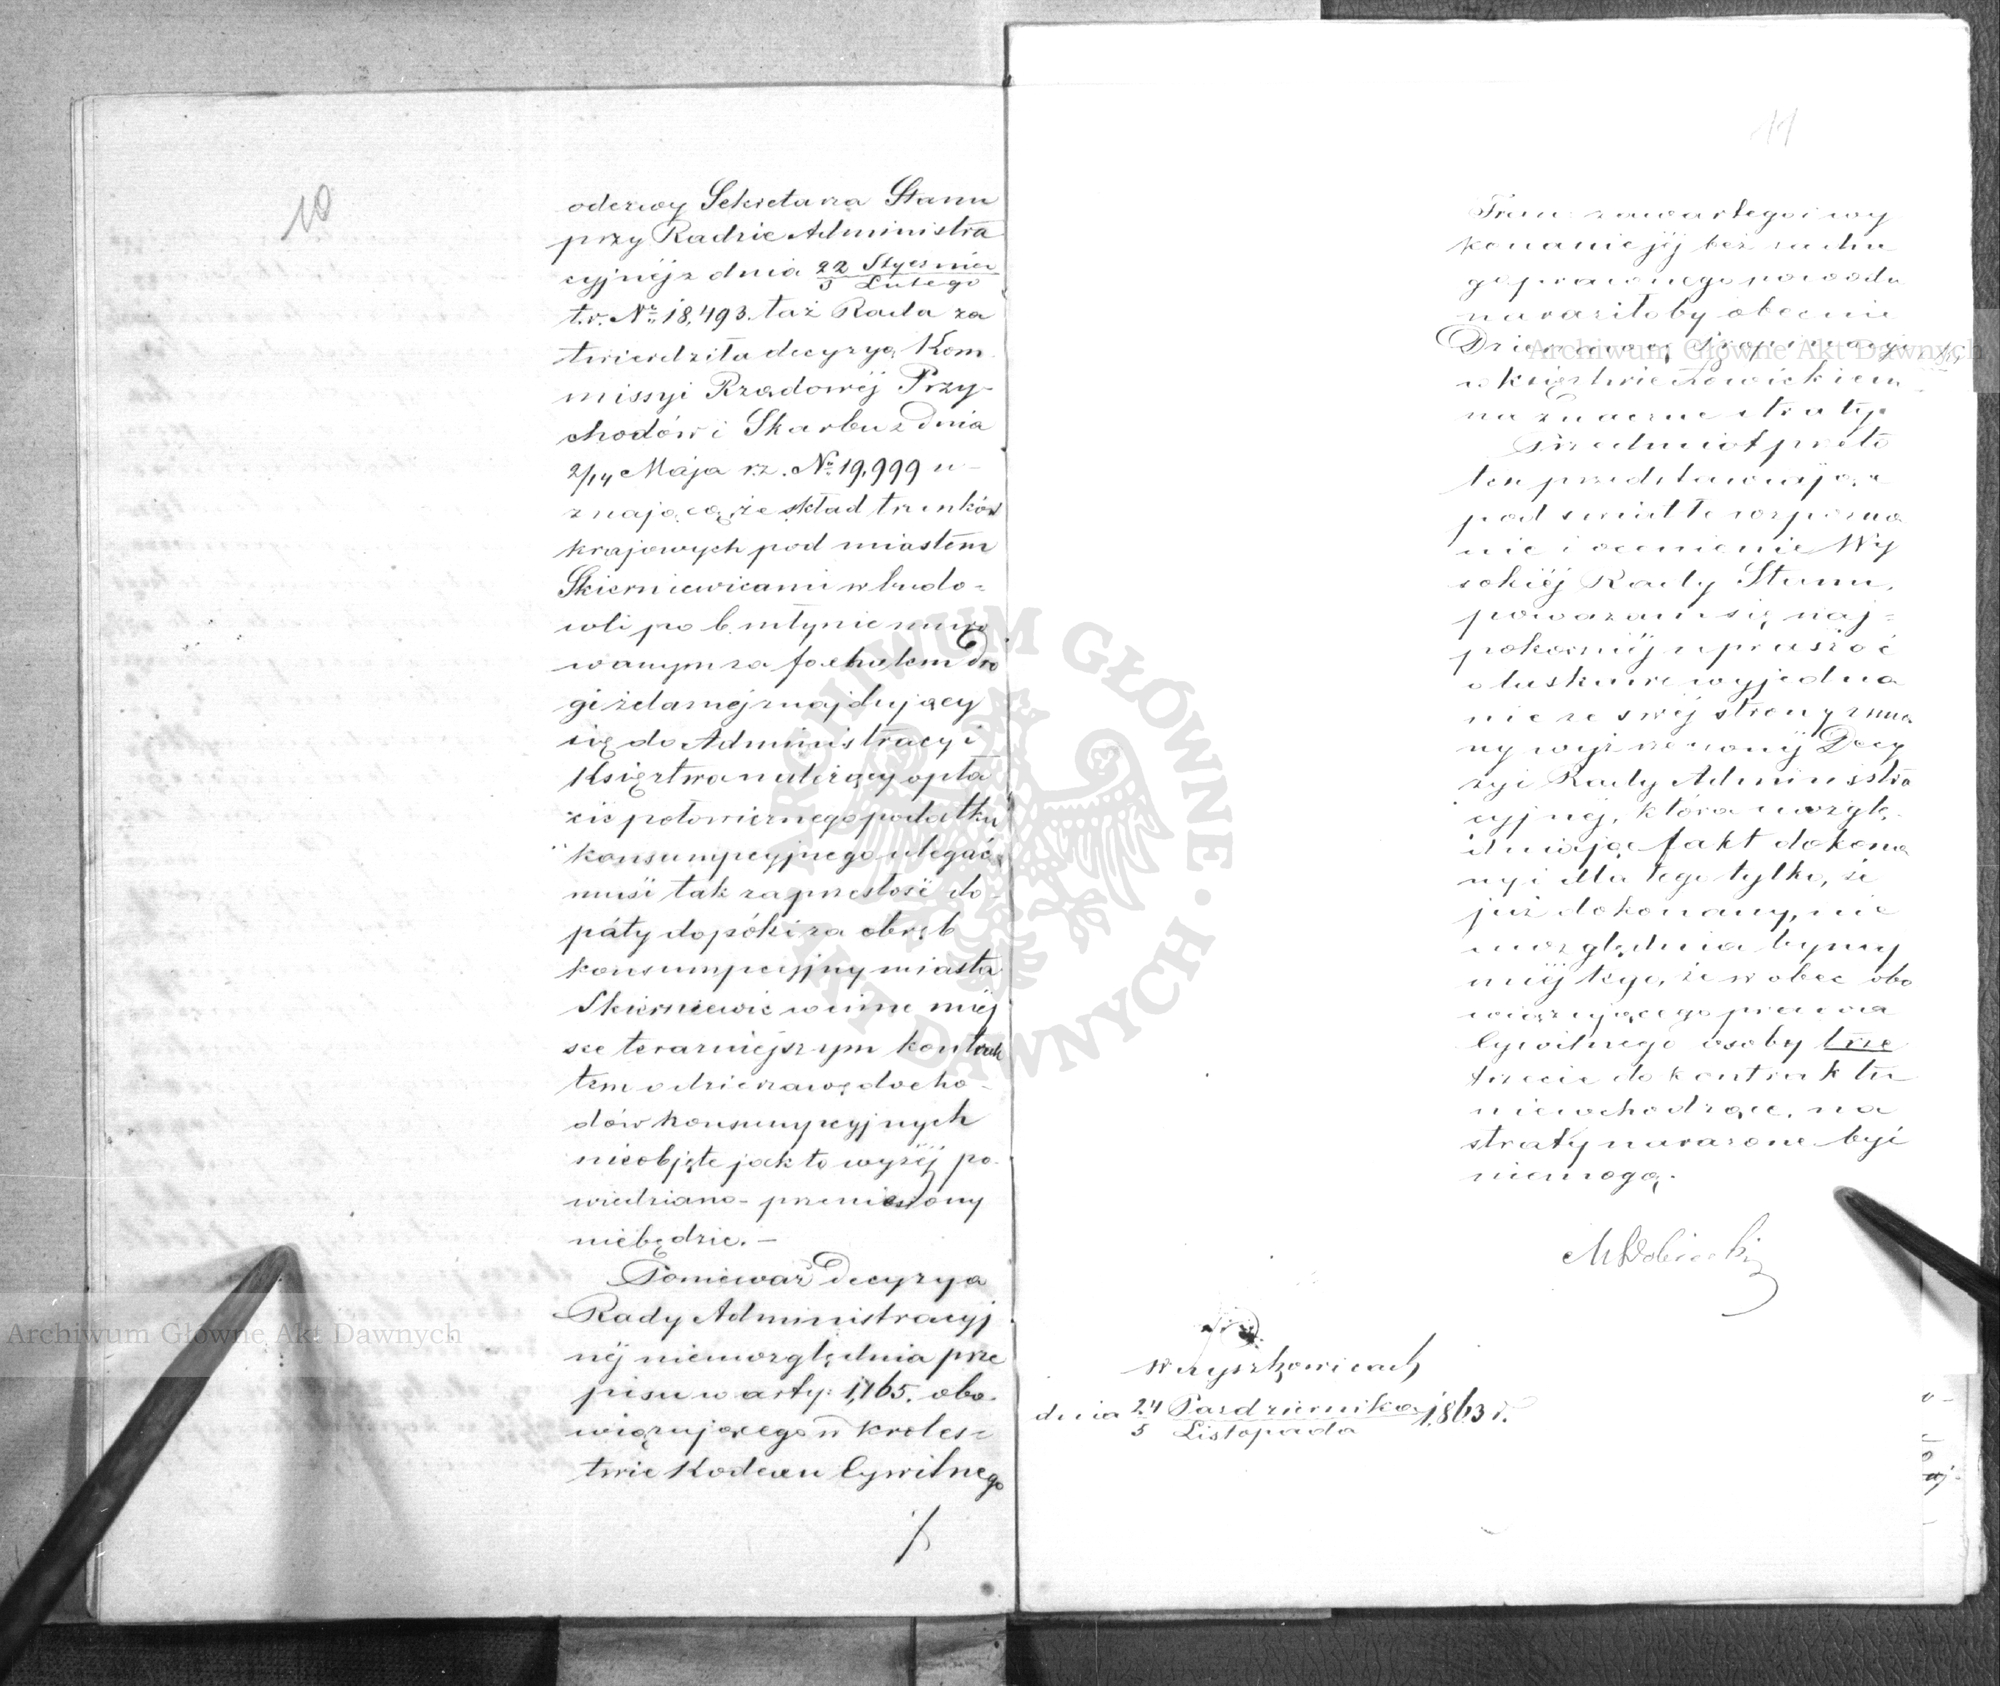 10
odezwy Sekretarza Stanu
przy Radzie Administra
cyjnéj z dnia 22 Stycznia
3 Lutego
t.r. Nr 18,493. taż Rada za
twierdziła decyzyą Kom
missyi Rządowéj Przy-
chodów i Skarbu z dnia
2/14 Maja r.z. Nr 19,999 u-
znającą, że skład trunków
krajowych pod miastem
Skierniewicami w budo-
wli po b. młynie muro
wanym za foehutem dro
gi żelaznej znajdujący
się do Administracyi
Księztwa należący opła
cie połowicznego podatku
konsumpcyjnego ulegać
musi tak za przeszłość do-
páty dopóki za obręb
konsumpcyjny miasta
Skierniewic w inne miej
sce teraźniejszym kontrak
tem o dzierżawę docho-
dów konsumpcyjnych
nieobjęte jak to wyżéj po-
wiedziano - przeniesiony
niebędzie. -
Ponieważ decyzya
Rady Administracyj
néj nieuwzględnia prze
pisu w arty: 1,165. obo-
wiązującego w Króles-
twie Kodexu Cywilnego
11
zawartego i wy
konanie jéj bez żadne
go prawnego powodu
naraziłoby obecnie
Dzierżawcę Propinacyi
w księztwie Łowickiem
na znaczne straty.
Przedmiot przeto
ten przedstawiając
pod światłe rozpozna
nie i ocenienie Wy
sokiéj Rady Stanu,
poważam się naj-
pokorniéj upraszać
o łaskawe wyjedna
nie ze swéj strony zmia
ny wyż rzeczonéj Decy
zyi Rady Administra
cyjnéj, która uwzglę-
dniając fakt dokona
ny i dla tego tylko, że
już dokonany, nie
uwzględnia bynaj
mniéj tego, że w obec obo
wiązującego prawa
Cywilnego osoby trze
trzecie do kontraktu
niewchodzące, na
straty narażone być
niemogą.
M Dobiecki
w Łyszkowicach
dnia 24 Pazdziernika 1863 r.
5 Listopada
Archiwum Główne Akt Dawnych
Archiwum Główne Akt Dawnych
ARCHIWUM GŁÓWNE · AKT DAWNYCH ·